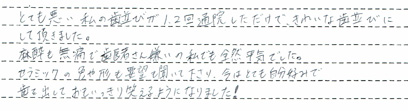 とても悪い私の歯並びが1.2回通院しただけで、きれいな歯並びに
して頂きました。
麻酔も無痛で歯医者さん嫌いの私でも全然平気でした。
セラミックの色や形も要望を聞いて下さり、今はとても自分好みで
歯を出しておもいっきり笑えるようになりました!